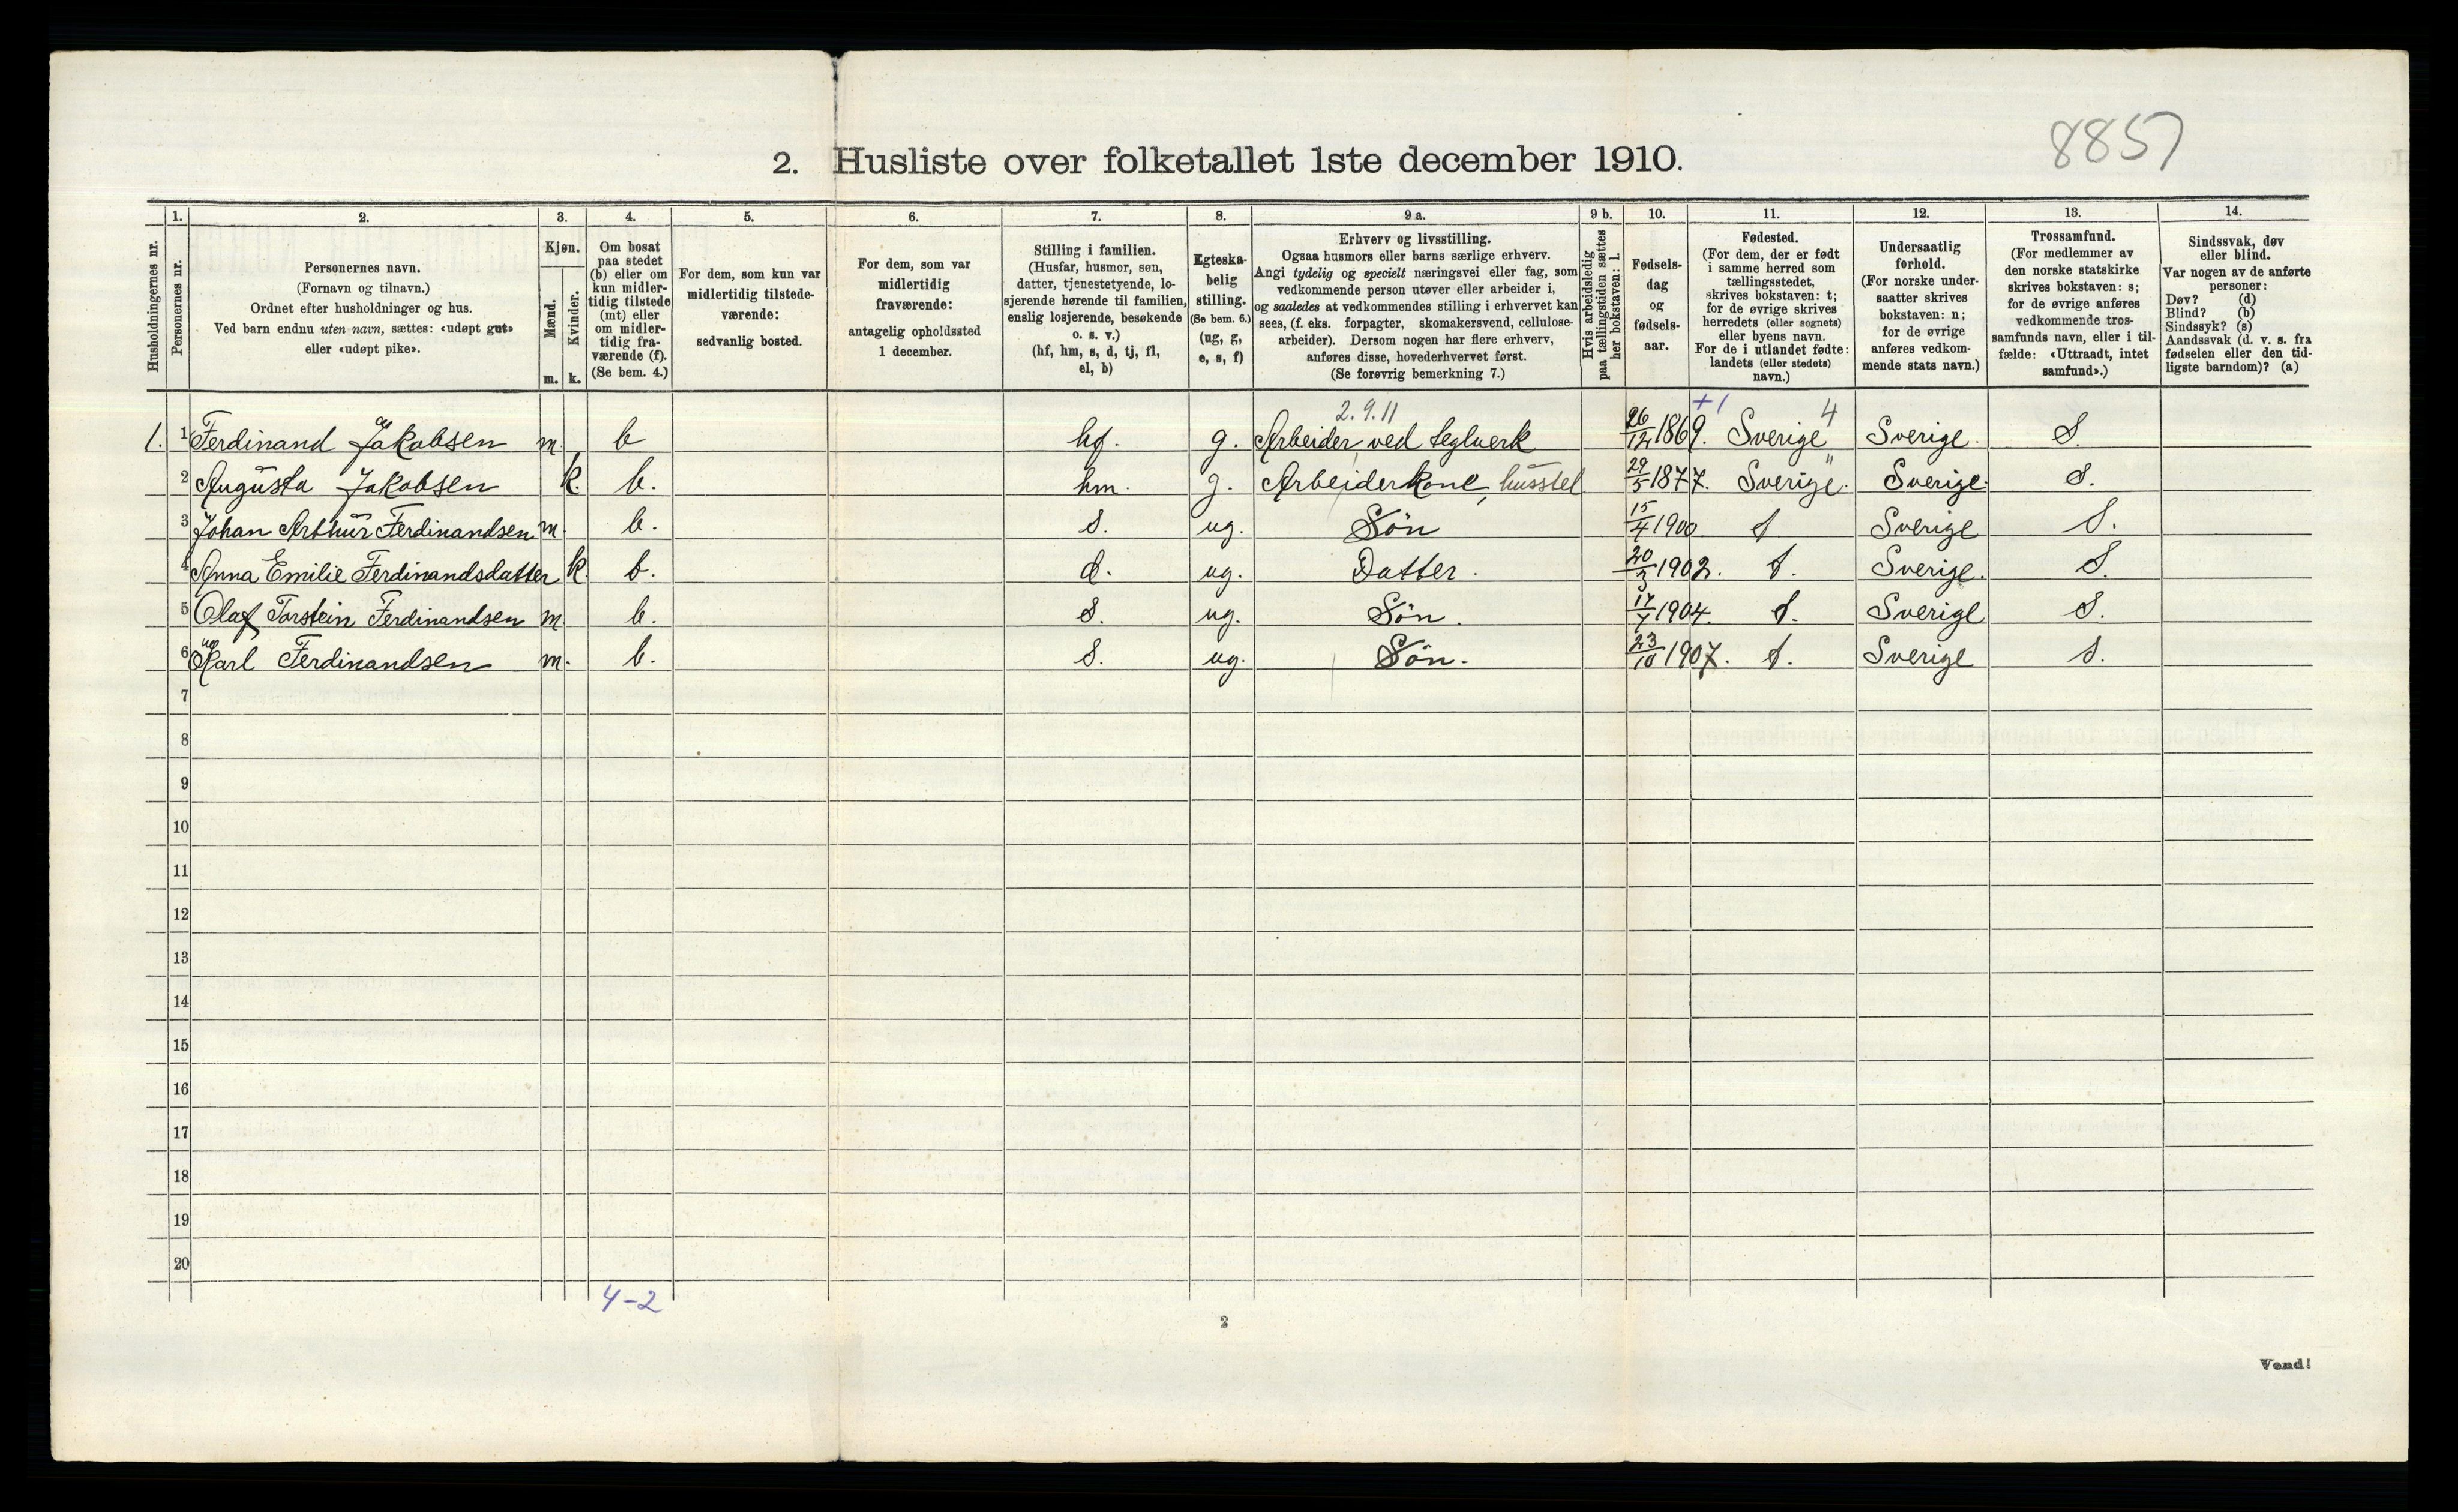 8857
2. Husliste over folketallet 1ste december 1910.
1. 2. 3. 4. 5. 6. 7. 8. 9 a. 9 b. 10. 11. 12. 13. 14.
Husholdningernes nr.
Personernes nr.
Personernes navn.
(Fornavn og tilnavn.)
Ordnet efter husholdninger og hus.
Ved barn endnu uten navn, sættes: «udøpt gut»
eller «udøpt pike».
Kjøn.
Mænd.
Kvinder.
m. k.
Om bosat
paa stedet
(b) eller om
kun midler-
tidig tilstede
(mt) eller
om midler-
tidig fra-
værende (f).
(Se bem. 4.)
For dem, som kun var
midlertidig tilstede-
værende:
sedvanlig bosted.
For dem, som var
midlertidig
fraværende:
antagelig opholdssted
1 december.
Stilling i familien.
(Husfar, husmor, søn,
datter, tjenestetyende, lo-
sjerende hørende til familien,
enslig losjerende, besøkende
o. s. v.)
(hf, hm, s, d, tj, fl,
el, b)
Egteska-
belig
stilling.
(Se bem. 6.)
(ug, g,
e, s, f)
Erhverv og livsstilling.
Ogsaa husmors eller barns særlige erhverv.
Angi tydelig og specielt næringsvei eller fag, som
vedkommende person utøver eller arbeider i,
og saaledes at vedkommendes stilling i erhvervet kan
sees, (f. eks. forpagter, skomakersvend, cellulose-
arbeider). Dersom nogen har flere erhverv,
anføres disse, hovederhvervet først.
(Se forøvrig bemerkning 7.)
Hvis arbeidsledig
paa tællingstiden sættes
her bokstaven: l.
Fødsels-
dag
og
fødsels-
aar.
Fødested.
(For dem, der er født
i samme herred som
tællingsstedet,
skrives bokstaven: t;
for de øvrige skrives
herredets (eller sognets)
eller byens navn.
For de i utlandet fødte:
landets (eller stedets)
navn.)
Undersaatlig
forhold.
(For norske under-
saatter skrives
bokstaven: n;
for de øvrige
anføres vedkom-
mende stats navn.)
Trossamfund.
(For medlemmer av
den norske statskirke
skrives bokstaven: s;
for de øvrige anføres
vedkommende tros-
samfunds navn, eller i til-
fælde: «Uttraadt, intet
samfund».)
Sindssvak, døv
eller blind.
Var nogen av de anførte
personer:
Døv? (d)
Blind? (b)
Sindssyk? (s)
Aandssvak (d. v. s. fra
fødselen eller den tid-
ligste barndom)? (a)
2.9.11 +1 4
1. 1 Ferdinand Jakobsen m. b hf. g. Arbeider ved teglverk 26/12 1869. Sverige Sverige. S.
2 Augusta Jakobsen k. b. hm. g. Arbeiderkone, husstel 29/5 1877. Sverige " Sverige. S.
3 Johan Arthur Ferdinandsen m. b. S. ug. Søn 15/4 1900 t Sverige S.
4 Anna Emilie Ferdinandsdatter k. b. d. ug. Datter. 20/3 1902. t. Sverige. S.
5 Olaf Torstein Ferdinandsen m. b. S. ug. Søn. 1904. t. Sverige S.
6 Karl Ferdinandsen m. b. S. ug. Søn. 23/10 1907. t. Sverige S.
7
8
9
10
11
12
13
14
15
16
17
18
19
20
4-2
2
Vend!